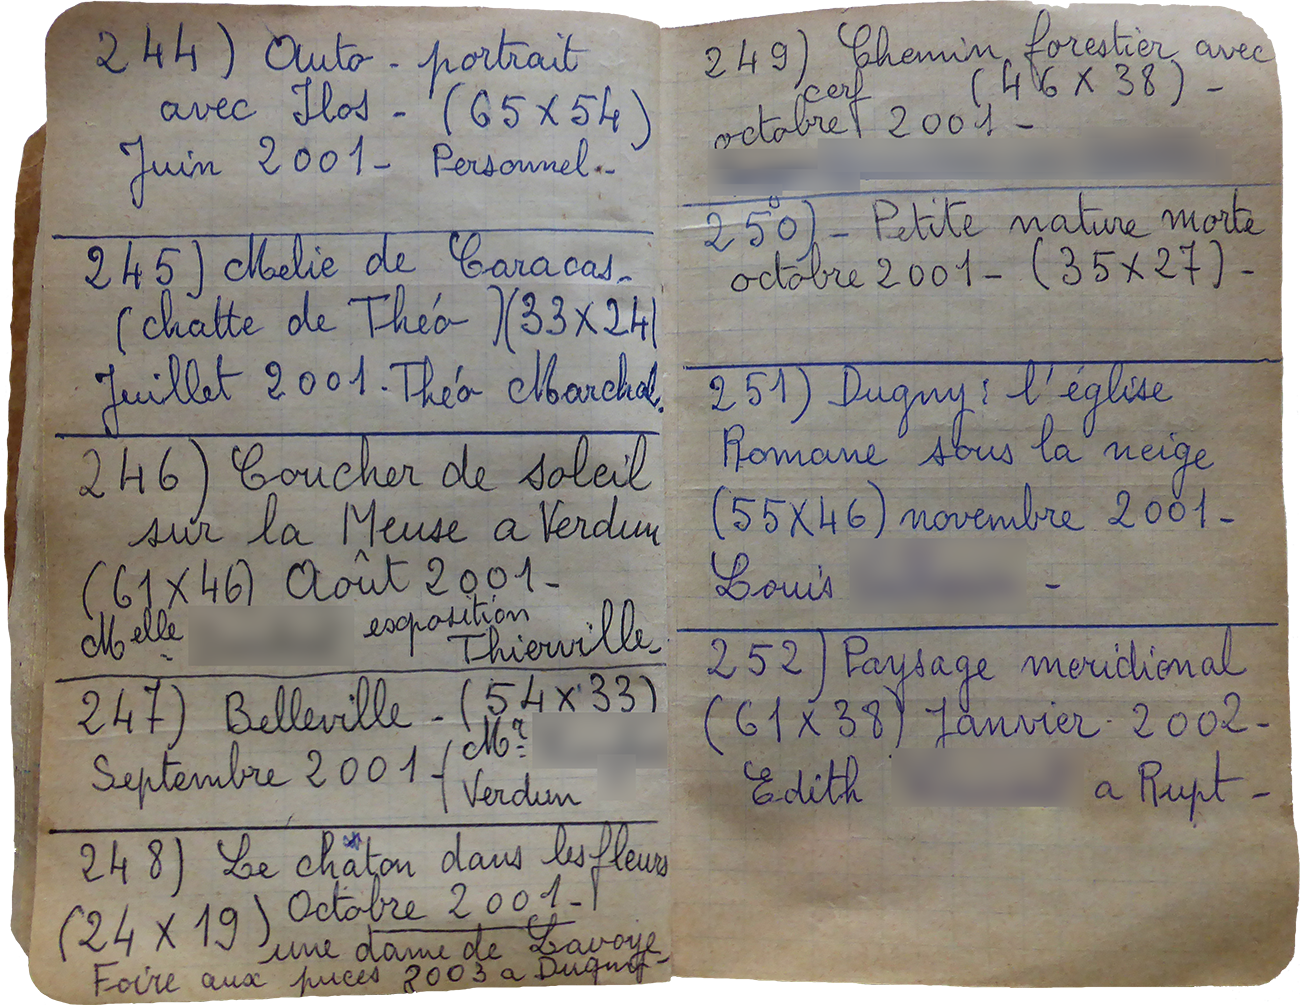 244) Auto - portrait
avec Ilos - (65 x 54)
Juin 2001 - Personnel -
245) Melie de Caracas -
(chatte de Théo) (33 x 24)
Juillet 2001 - Théo Marchal.
246) Coucher de soleil
sur la Meuse a Verdun
(61 x 46) Août 2001 -
Melle exposition
Thierville -
247) Belleville - (54 x 33)
Mr
Septembre 2001 - (
Verdun
248) Le châton dans les fleurs
Octobre 2001 -
(24 x 19) une dame de Lavoye -
Foire aux puces 2003 a Dugny -
249) Chemin forestier avec
cerf (46 x 38) -
octobre 2001 -
250) - Petite nature morte
octobre 2001 - (35 x 27) -
251) Dugny : l'église
Romane sous la neige
(55 x 46) novembre 2001 -
Louis -
252) Paysage meridional
(61 x 38) Janvier 2002 -
Edith a Rupt -